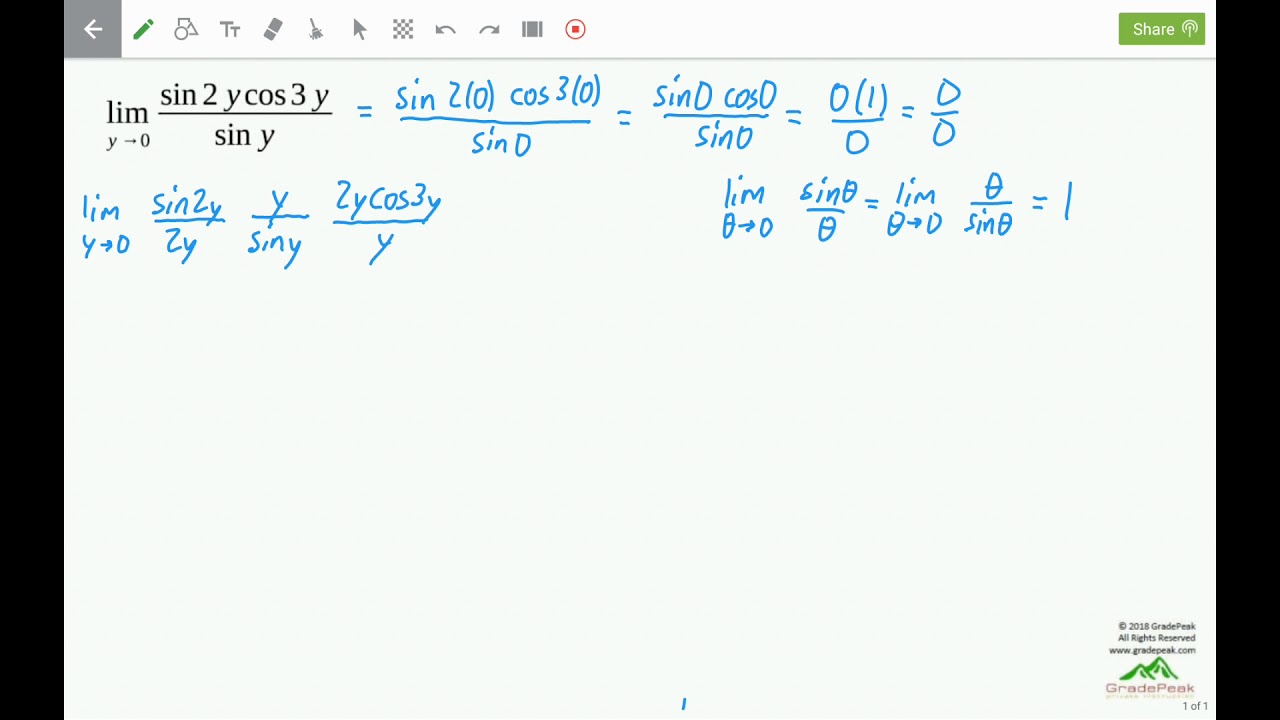 Share
lim y→0 (sin 2 y cos 3 y)/(sin y) = (sin 2(0) cos 3(0))/(sin 0) = (sin0 cos0)/(sin0) = 0(1)/0 = 0/0
lim y→0 (sin2y)/(2y) y/(siny) (2ycos3y)/y
lim θ→0 (sinθ)/θ = lim θ→0 θ/(sinθ) = 1
© 2018 GradePeak
All Rights Reserved
www.gradepeak.com
GradePeak
private instruction
1 of 1